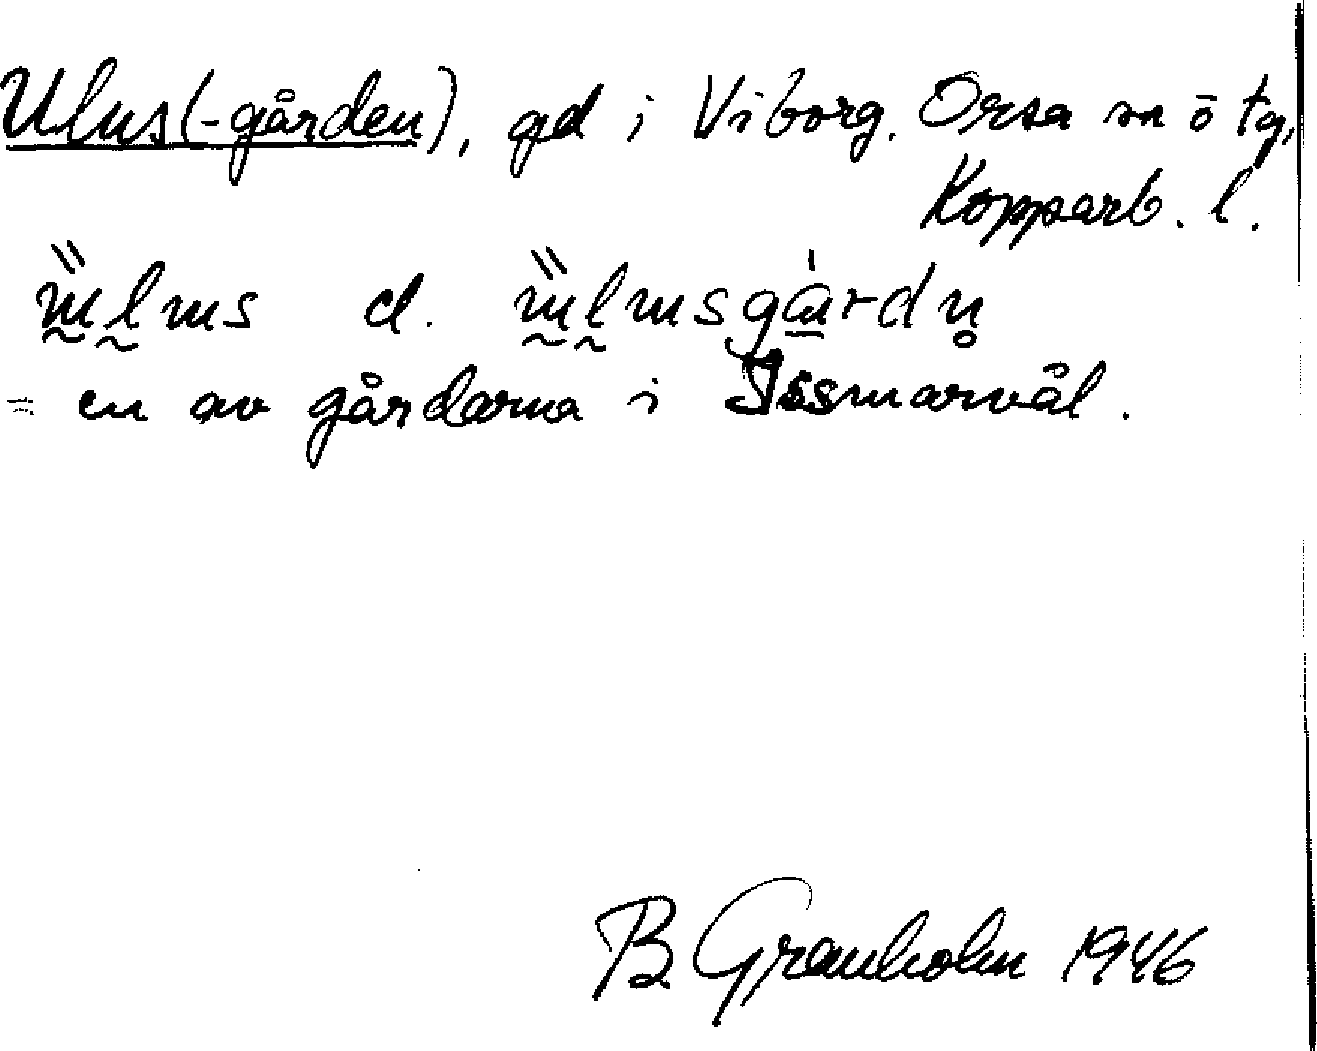 Ulus(-gården), gd i Viborg. Orsa sn ö tg,
Kopparb. l.
el.
= en av gårdarna i Issmarvål.
B Granholm 1946